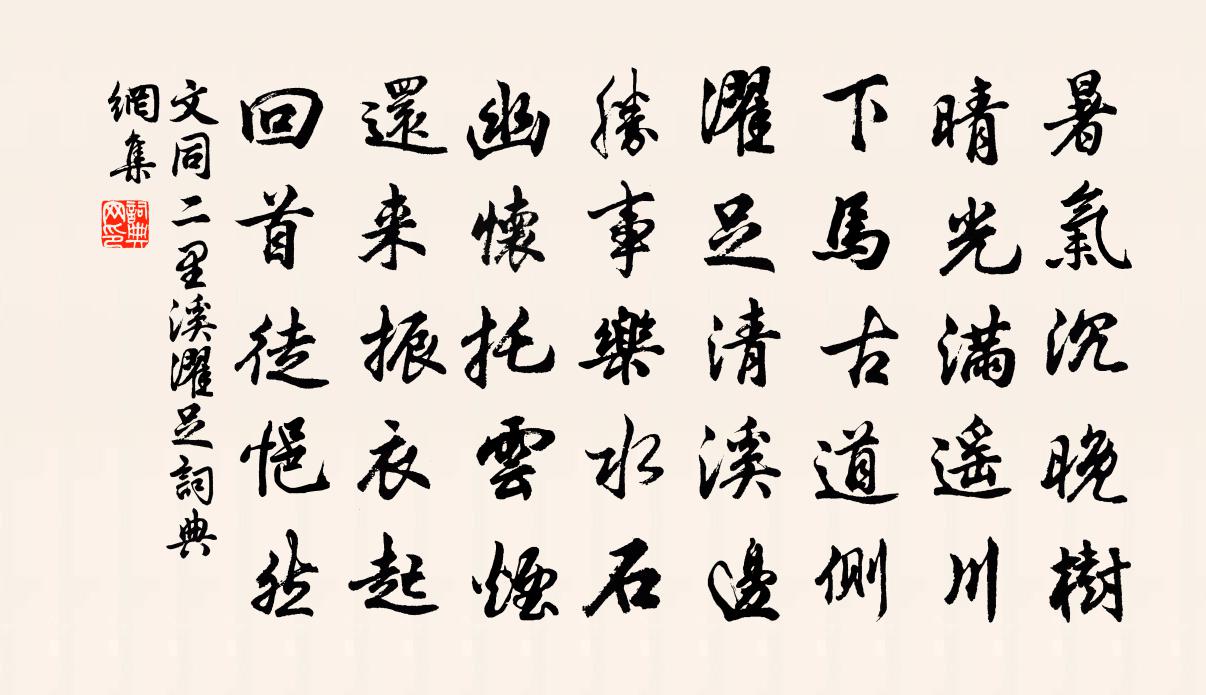 暑氣沉晚樹
晴光滿遥川
下馬古道側
濯足清溪邊
勝事樂水石
幽懷托雲煙
還来振衣起
回首徒悒然
文同二里溪濯足詞典
網集
詞典網印